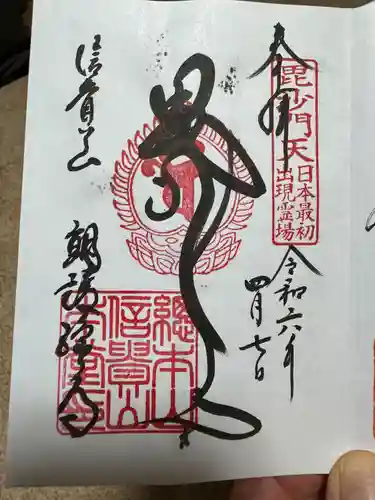 奉拝
毘沙門天
日本最初
出現霊場
令和六年
四月七日
信貴山
朝護孫子寺
総本山
信貴山